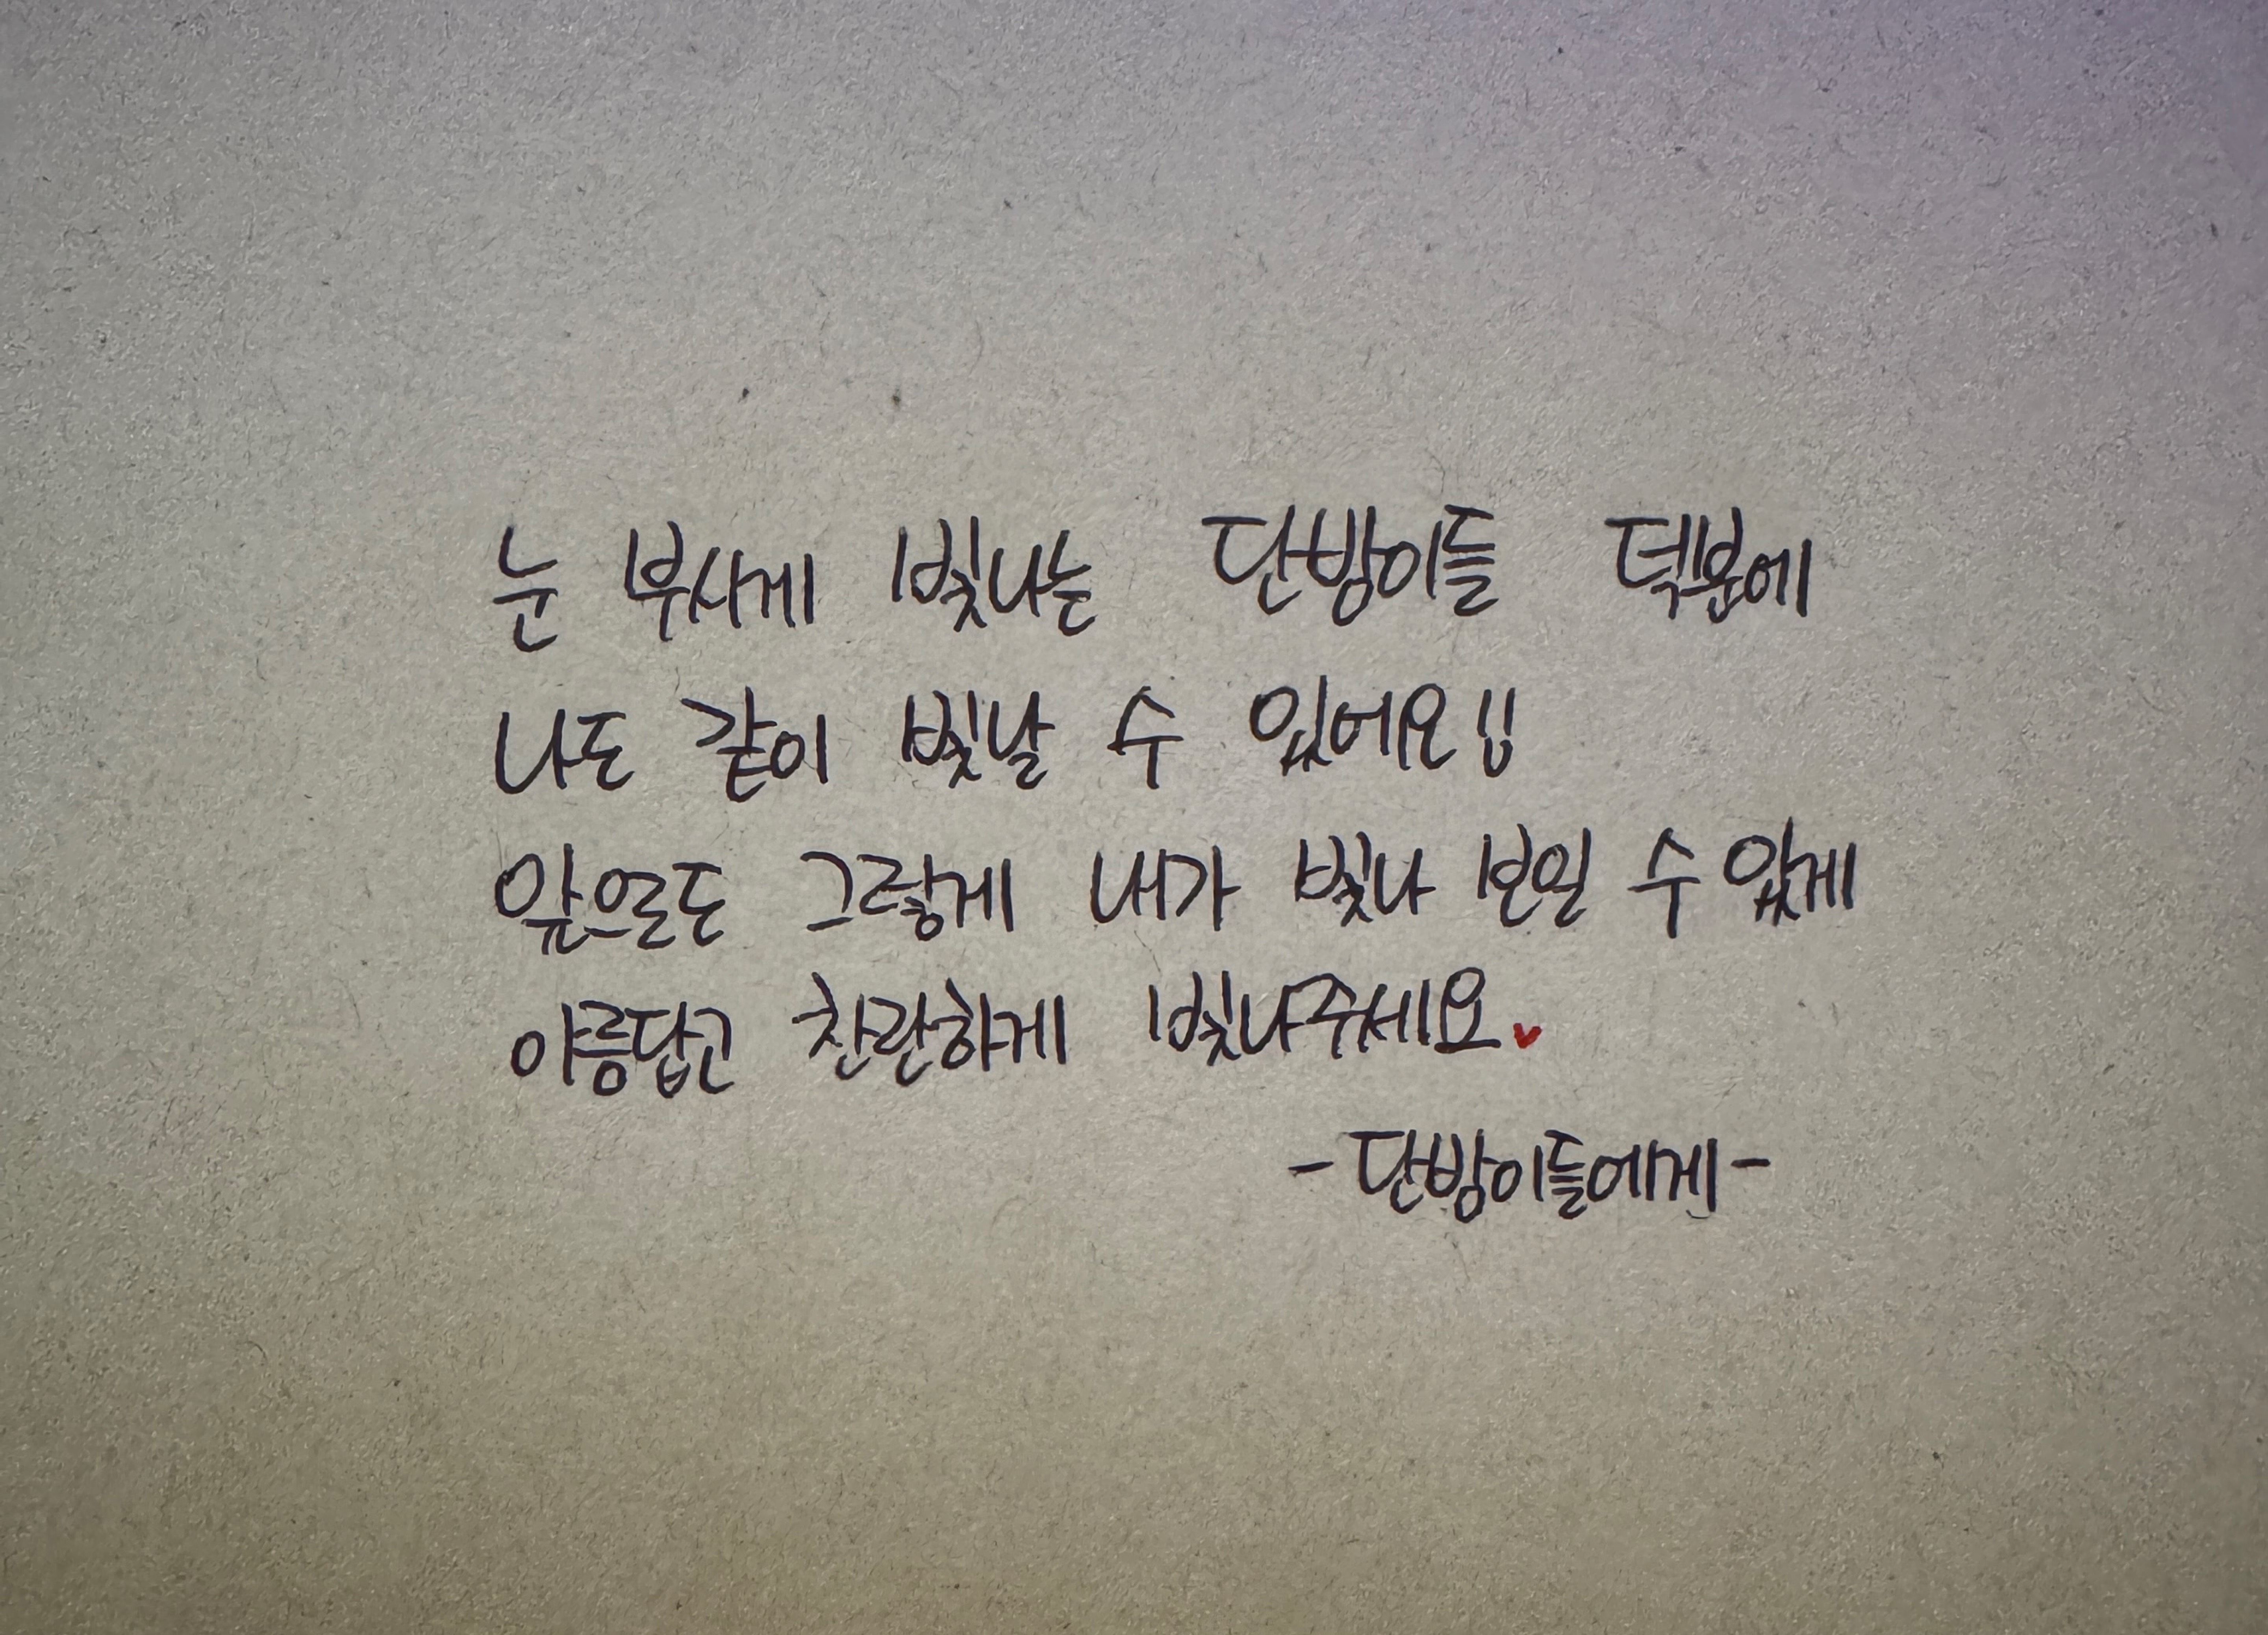 눈 부시게 빛나는 단방이들 덕분에
나도 같이 빛날 수 있어요!!
앞으로도 그렇게 내가 빛나 보일 수 있게
아름답고 찬란하게 빛나주세요♥
-단방이들에게-